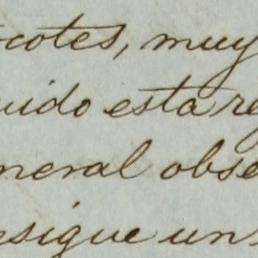 cotes, muy
uido esta re
neral obse
sigue un